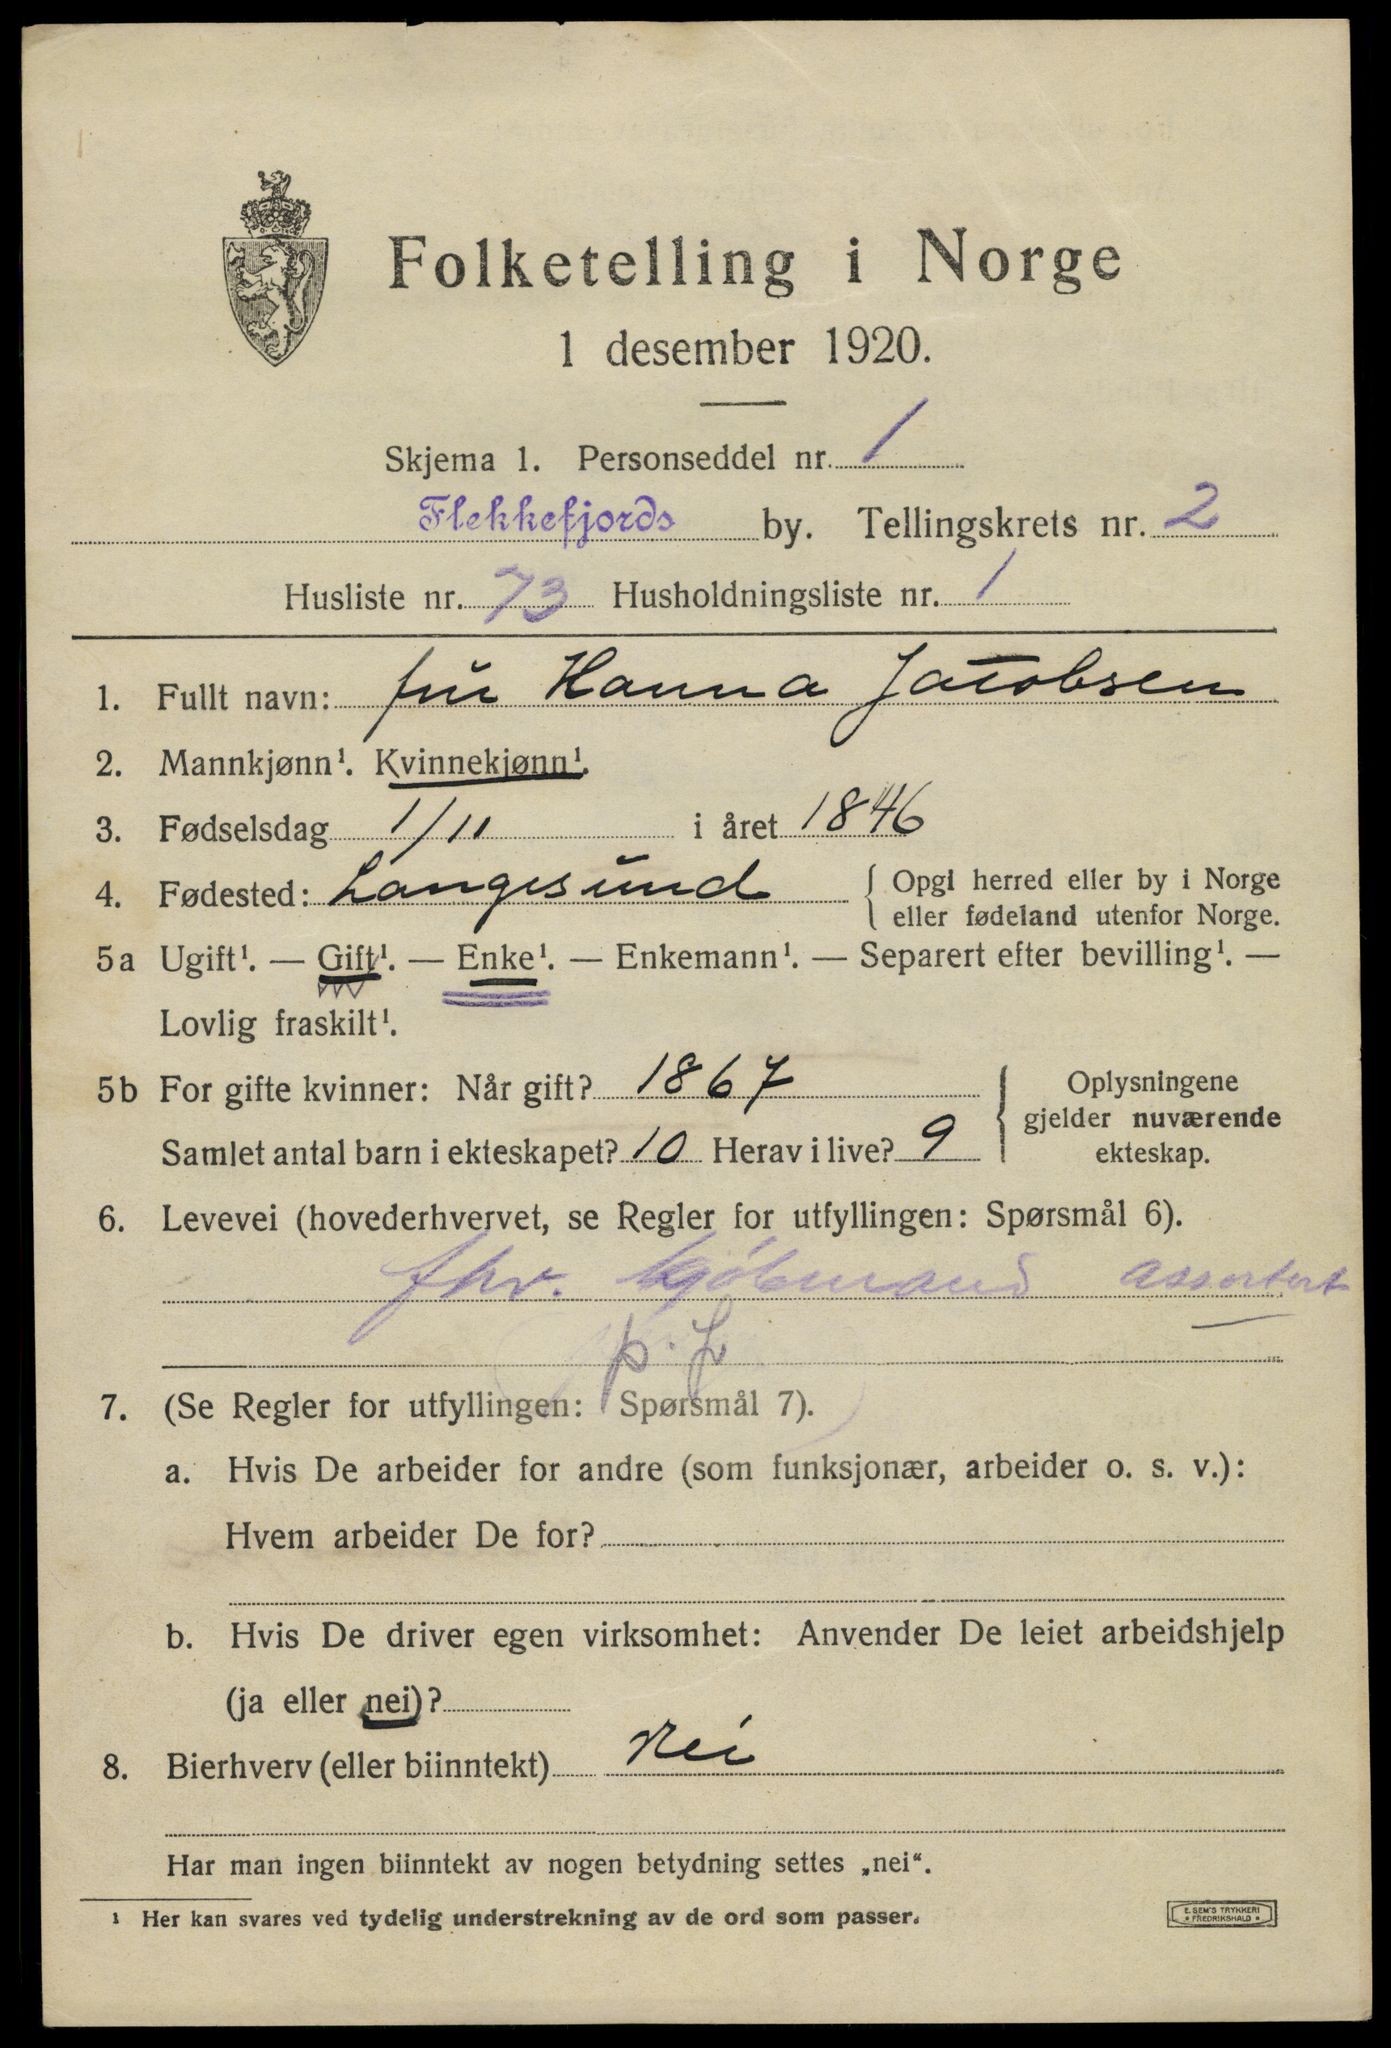 Folketelling i Norge
1 desember 1920.
Skjema 1. Personseddel nr. 1
Flekkefjords by. Tellingskrets nr. 2
Husliste nr. 73 Husholdningsliste nr. 1
1. Fullt navn: fru Hanna Jacobsen
2. Mannkjønn¹. Kvinnekjønn¹.
3. Fødselsdag 1/11 i året 1846
4. Fødested: Langesund { Opgi herred eller by i Norge
eller fødeland utenfor Norge.
5a Ugift¹. — Gift¹. — Enke¹. — Enkemann¹. — Separert efter bevilling¹. —
Lovlig fraskilt¹.
5b For gifte kvinner: Når gift? 1867
Samlet antal barn i ekteskapet? 10 Herav i live? 9
{ Oplysningene
gjelder nuværende
ekteskap.
6. Levevei (hovederhvervet, se Regler for utfyllingen: Spørsmål 6).
fhv. kjöbmand assortert
p.f
7. (Se Regler for utfyllingen: Spørsmål 7).
a. Hvis De arbeider for andre (som funksjonær, arbeider o. s. v.):
Hvem arbeider De for?
b. Hvis De driver egen virksomhet: Anvender De leiet arbeidshjelp
(ja eller nei)?
8. Bierhverv (eller biinntekt) Nei
Har man ingen biinntekt av nogen betydning settes „nei“.
¹ Her kan svares ved tydelig understrekning av de ord som passer.
E. SEM'S TRYKKERI
* FREDRIKSHALD *